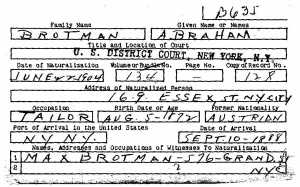 B635
Family Name Given Name or Names
BROTMAN ABRAHAM
Title and Location of Court
U. S. DISTRICT COURT, NEW YORK, N.Y.
Date of Naturalization Volume or Bundle No. Page No. Copy of Record No.
JUNE 22-1904 134 128
Address of Naturalized Person
169 ESSEX ST. NY CITY
Occupation Birth Date or Age Former Nationality
TAILOR AUG. 5-1872 AUSTRIAN
Port of Arrival in the United States Date of Arrival
NY NY. SEPT. 10-1888
Names, Addresses and Occupations of Witnesses To Naturalization
1 MAX BROTMAN-576-GRAND. ST
2 NYC